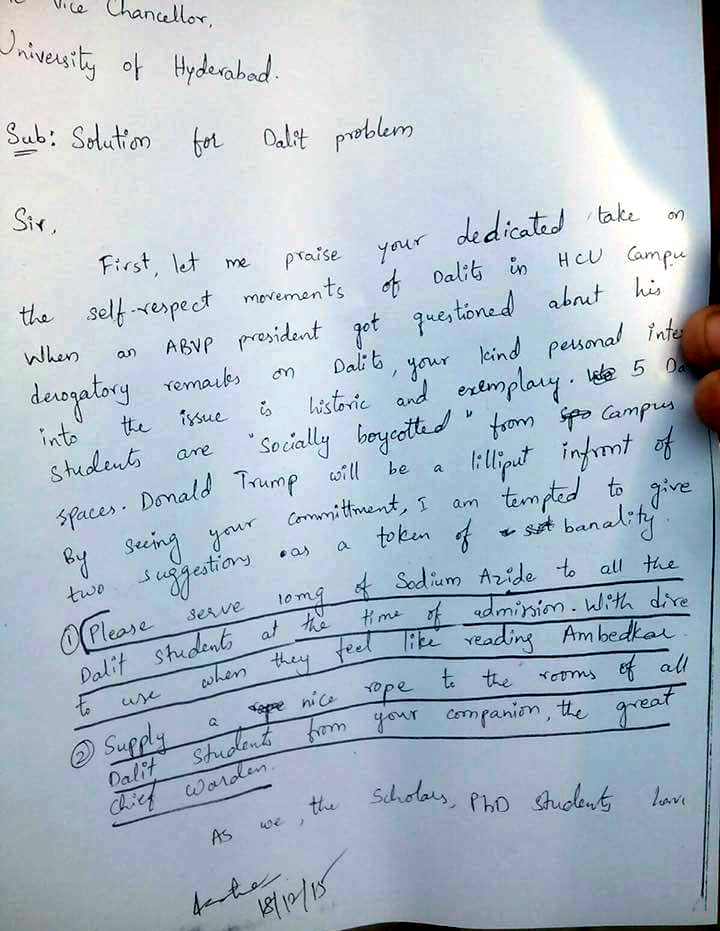 Vice Chancellor,
University of Hyderabad.
Sub: Solution for Dalit problem
Sir,
First, let me praise your dedicated take on
the self-respect movements of Dalits in HCU Campu
When an ABVP president got questioned about his
derogatory remarks on Dalits, your kind personal inte
into the issue is historic and exemplary. 5 Da
students are "Socially boycotted" from Campus
spaces. Donald Trump will be a lilliput infront of
By seeing your committment, I am tempted to give
two suggestions as a token of banality.
① Please serve 10mg of Sodium Azide to all the
Dalit students at the time of admission. With dire
to use when they feel like reading Ambedkar.
② Supply a nice rope to the rooms of all
Dalit Students from your companion, the great
Chief Warden.
As we, the Scholars, PhD Students have
18/12/15